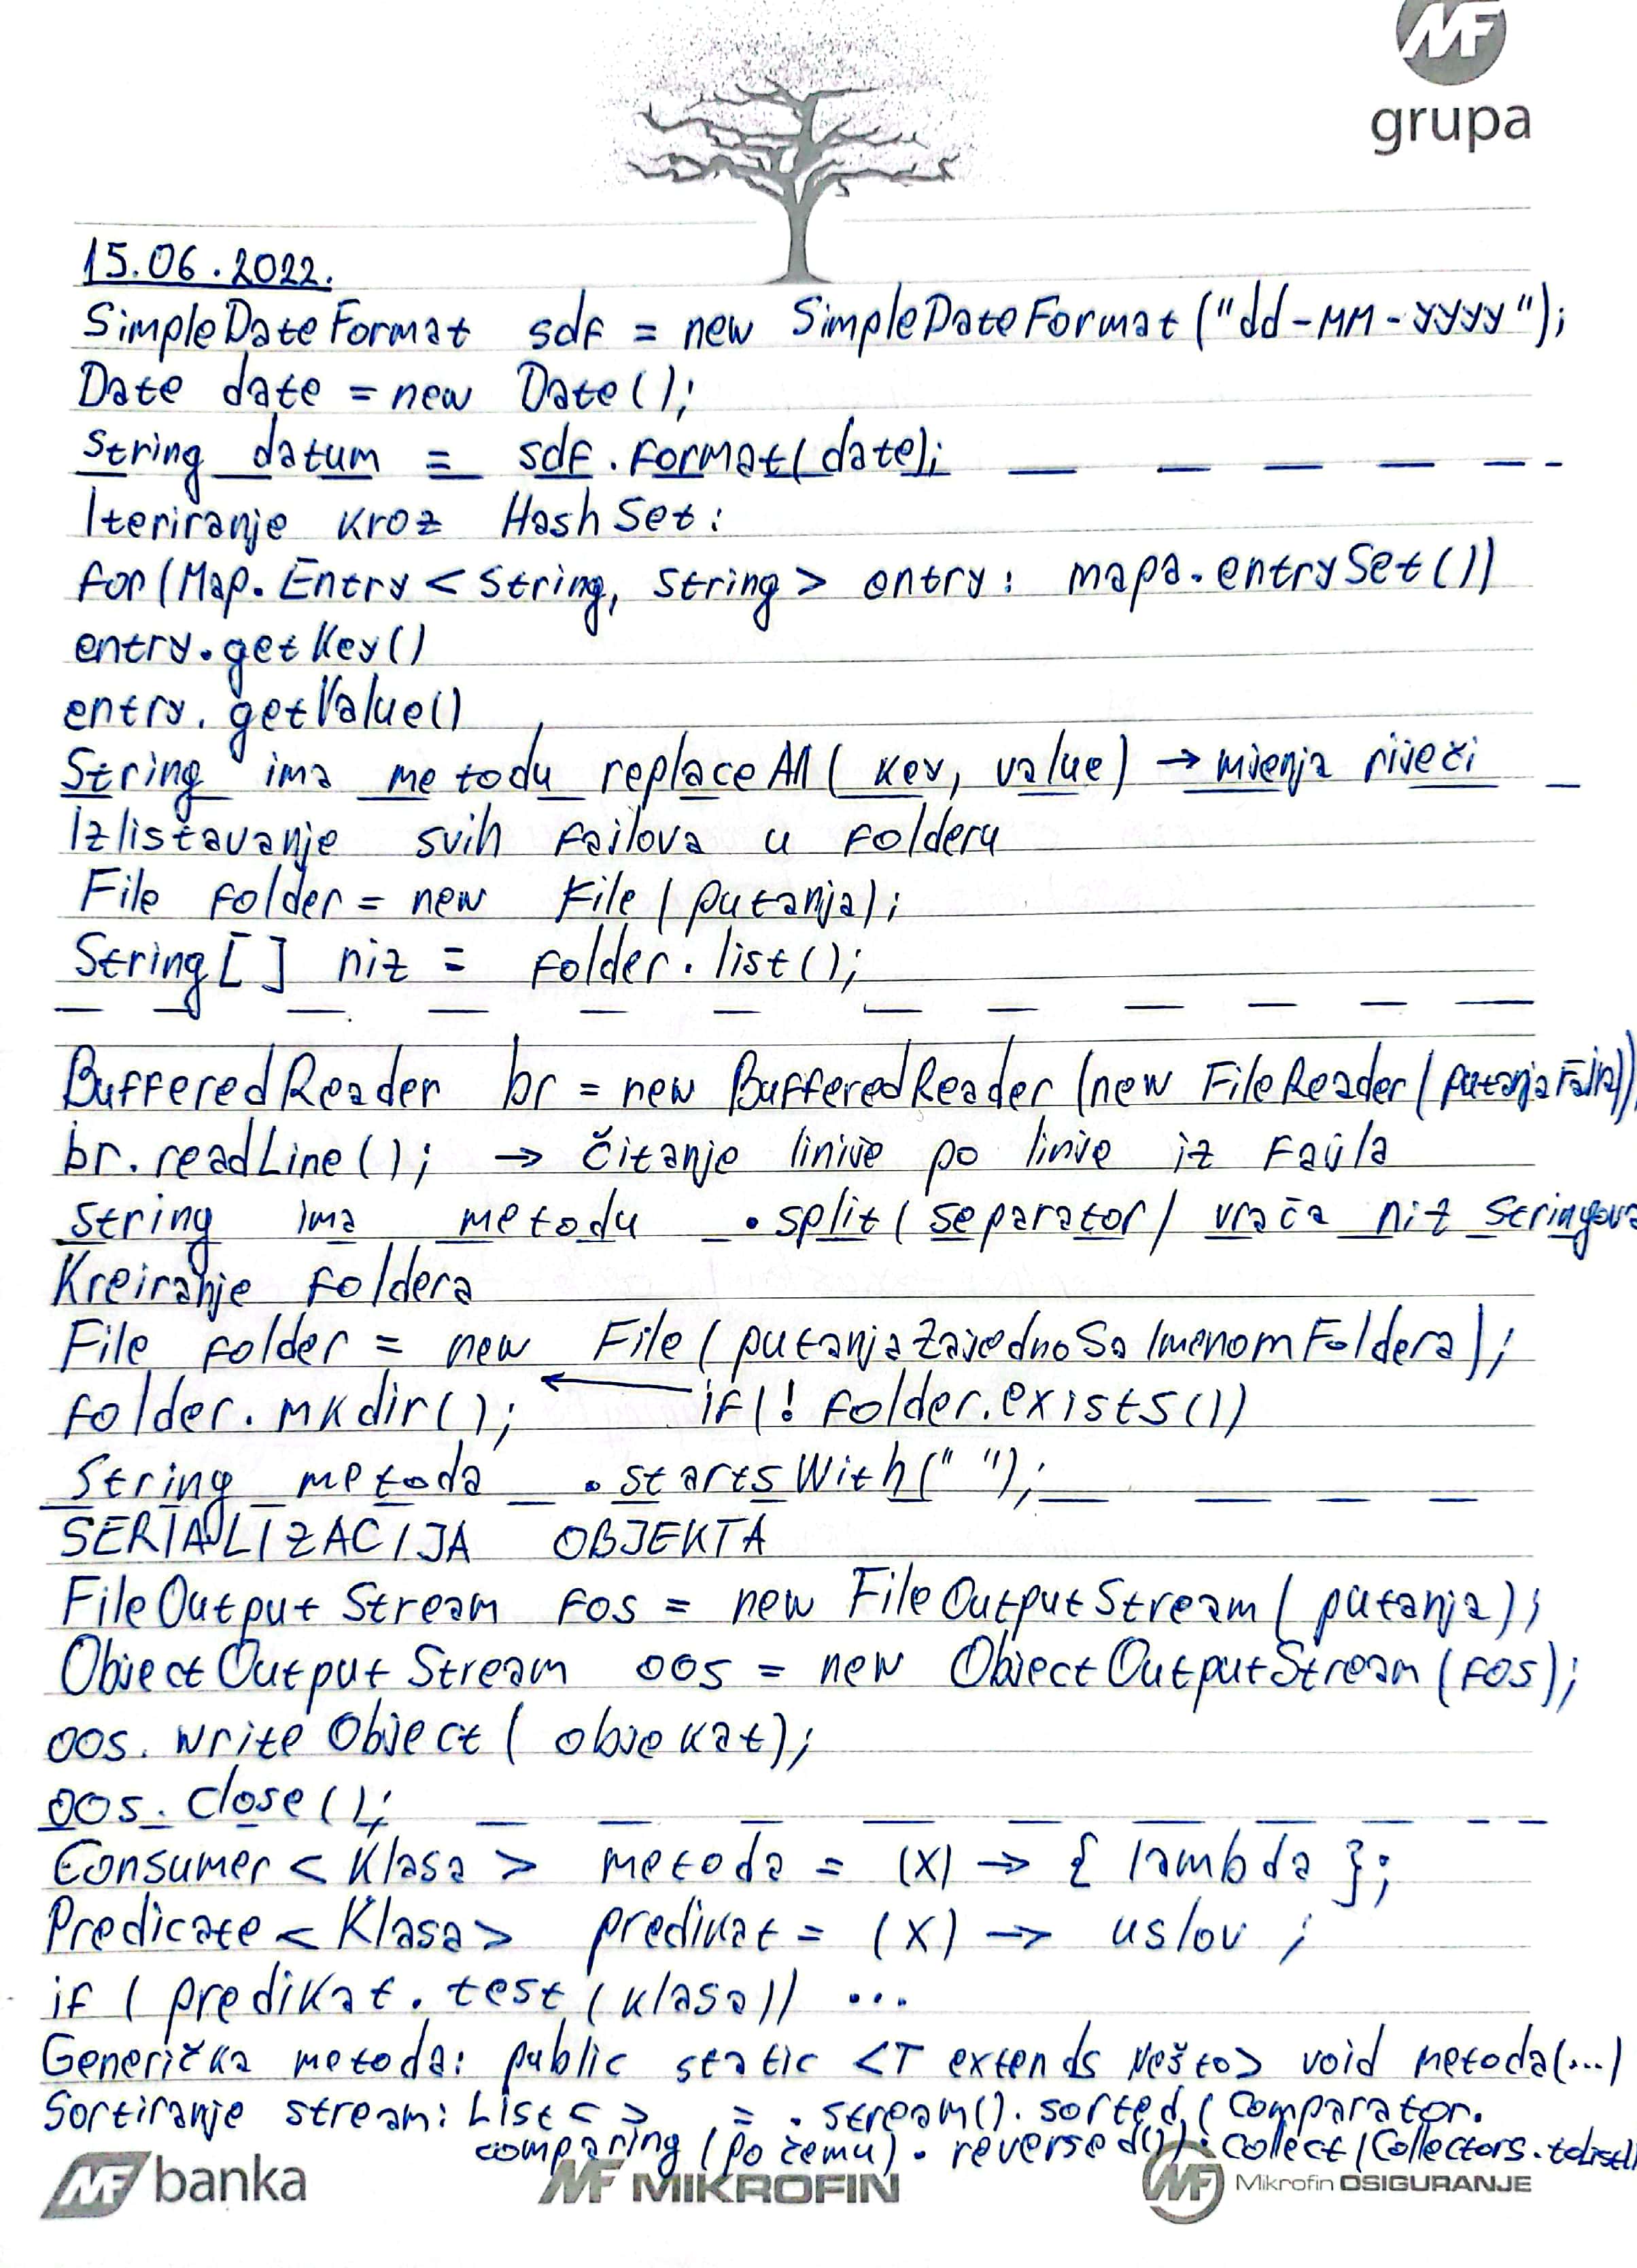 MF
grupa
15.06.2022.
SimpleDateFormat sdf = new SimpleDateFormat("dd-MM-yyyy");
Date date = new Date();
String datum = sdf.format(date);
Iteriranje kroz HashSet:
for(Map.Entry<String, String> entry: mapa.entrySet())
entry.getKey()
entry.getValue()
String ima metodu replaceAll(key, value) → mjenja riječi
Izlistavanje svih fajlova u folderu
File folder = new File(putanja);
String[] niz = folder.list();
BufferedReader br = new BufferedReader(new FileReader(putanjaFajla))
br.readLine(); → čitanje linije po linije iz fajla
String ima metodu .split(separator) vraća niz stringova
Kreiranje foldera
File folder = new File(putanjaZajednoSaImenomFoldera);
folder.mkdir(); ← if(!folder.exists())
String metoda .startsWith(" ");
SERIALIZACIJA OBJEKTA
FileOutputStream fos = new FileOutputStream(putanja);
ObjectOutputStream oos = new ObjectOutputStream(fos);
oos.writeObject(objekat);
oos.close();
Consumer<Klasa> metoda = (x) → { lambda };
Predicate<Klasa> predikat = (x) → uslov ;
if (predikat.test(klasa)) ...
Generička metoda: public static <T extends Nešto> void metoda(...)
Sortiranje stream: List< > = .stream().sorted(Comparator.
comparing(po čemu).reversed()).collect(Collectors.toList()
MF banka MF MIKROFIN MF Mikrofin OSIGURANJE